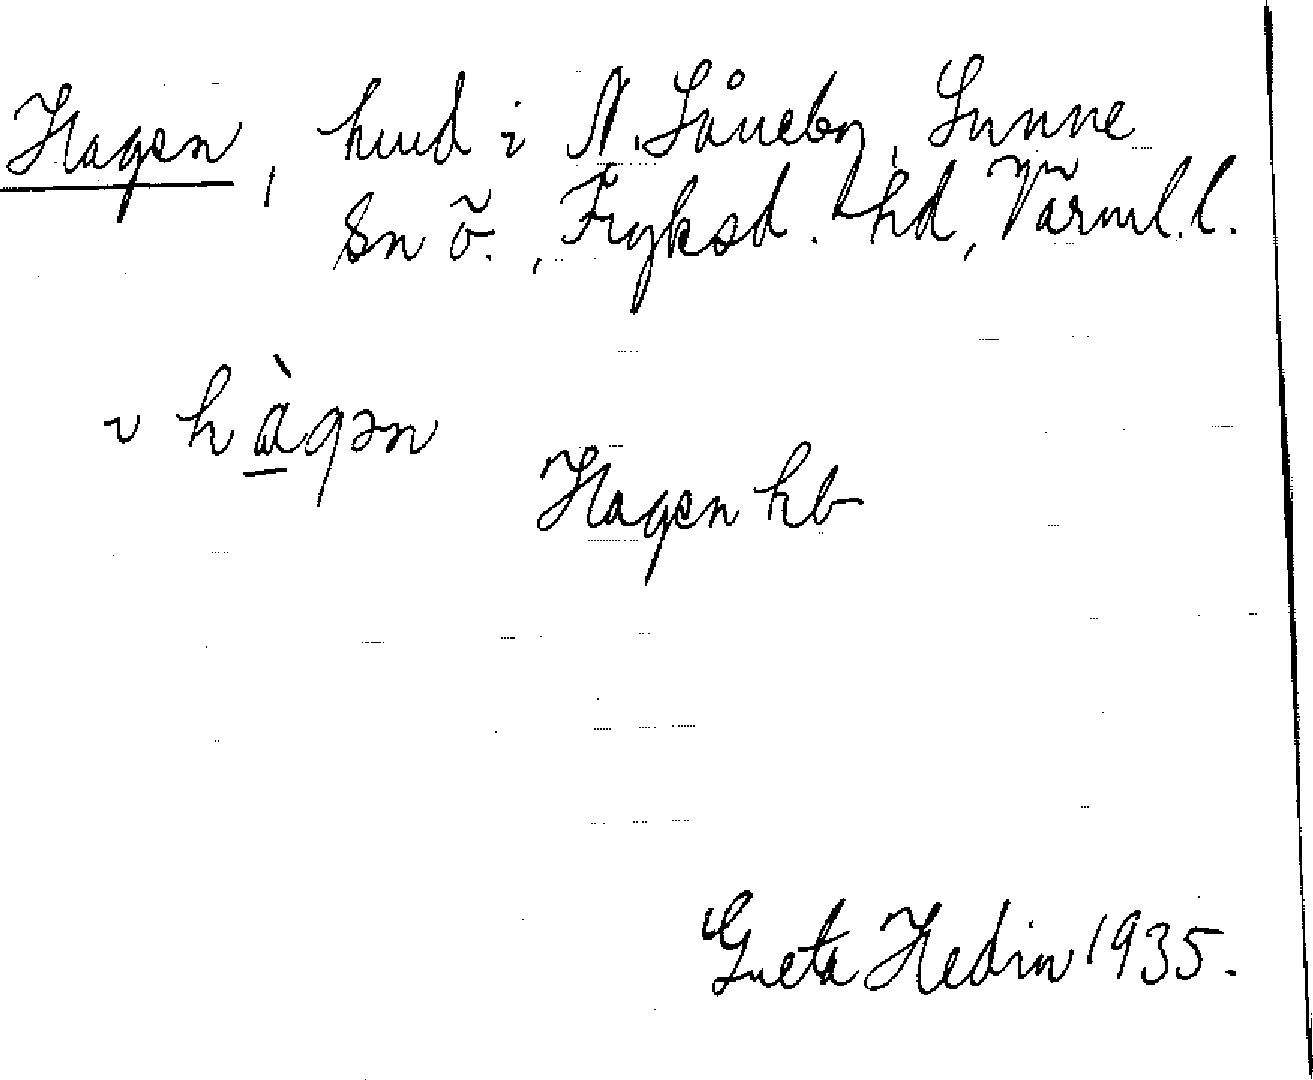 Hagen, hmd i N. Såneby, Sunne
sn ö., Fryksd. hd, Värml. l.
~ hàgən
Hagen hb
Greta Hedin 1935.